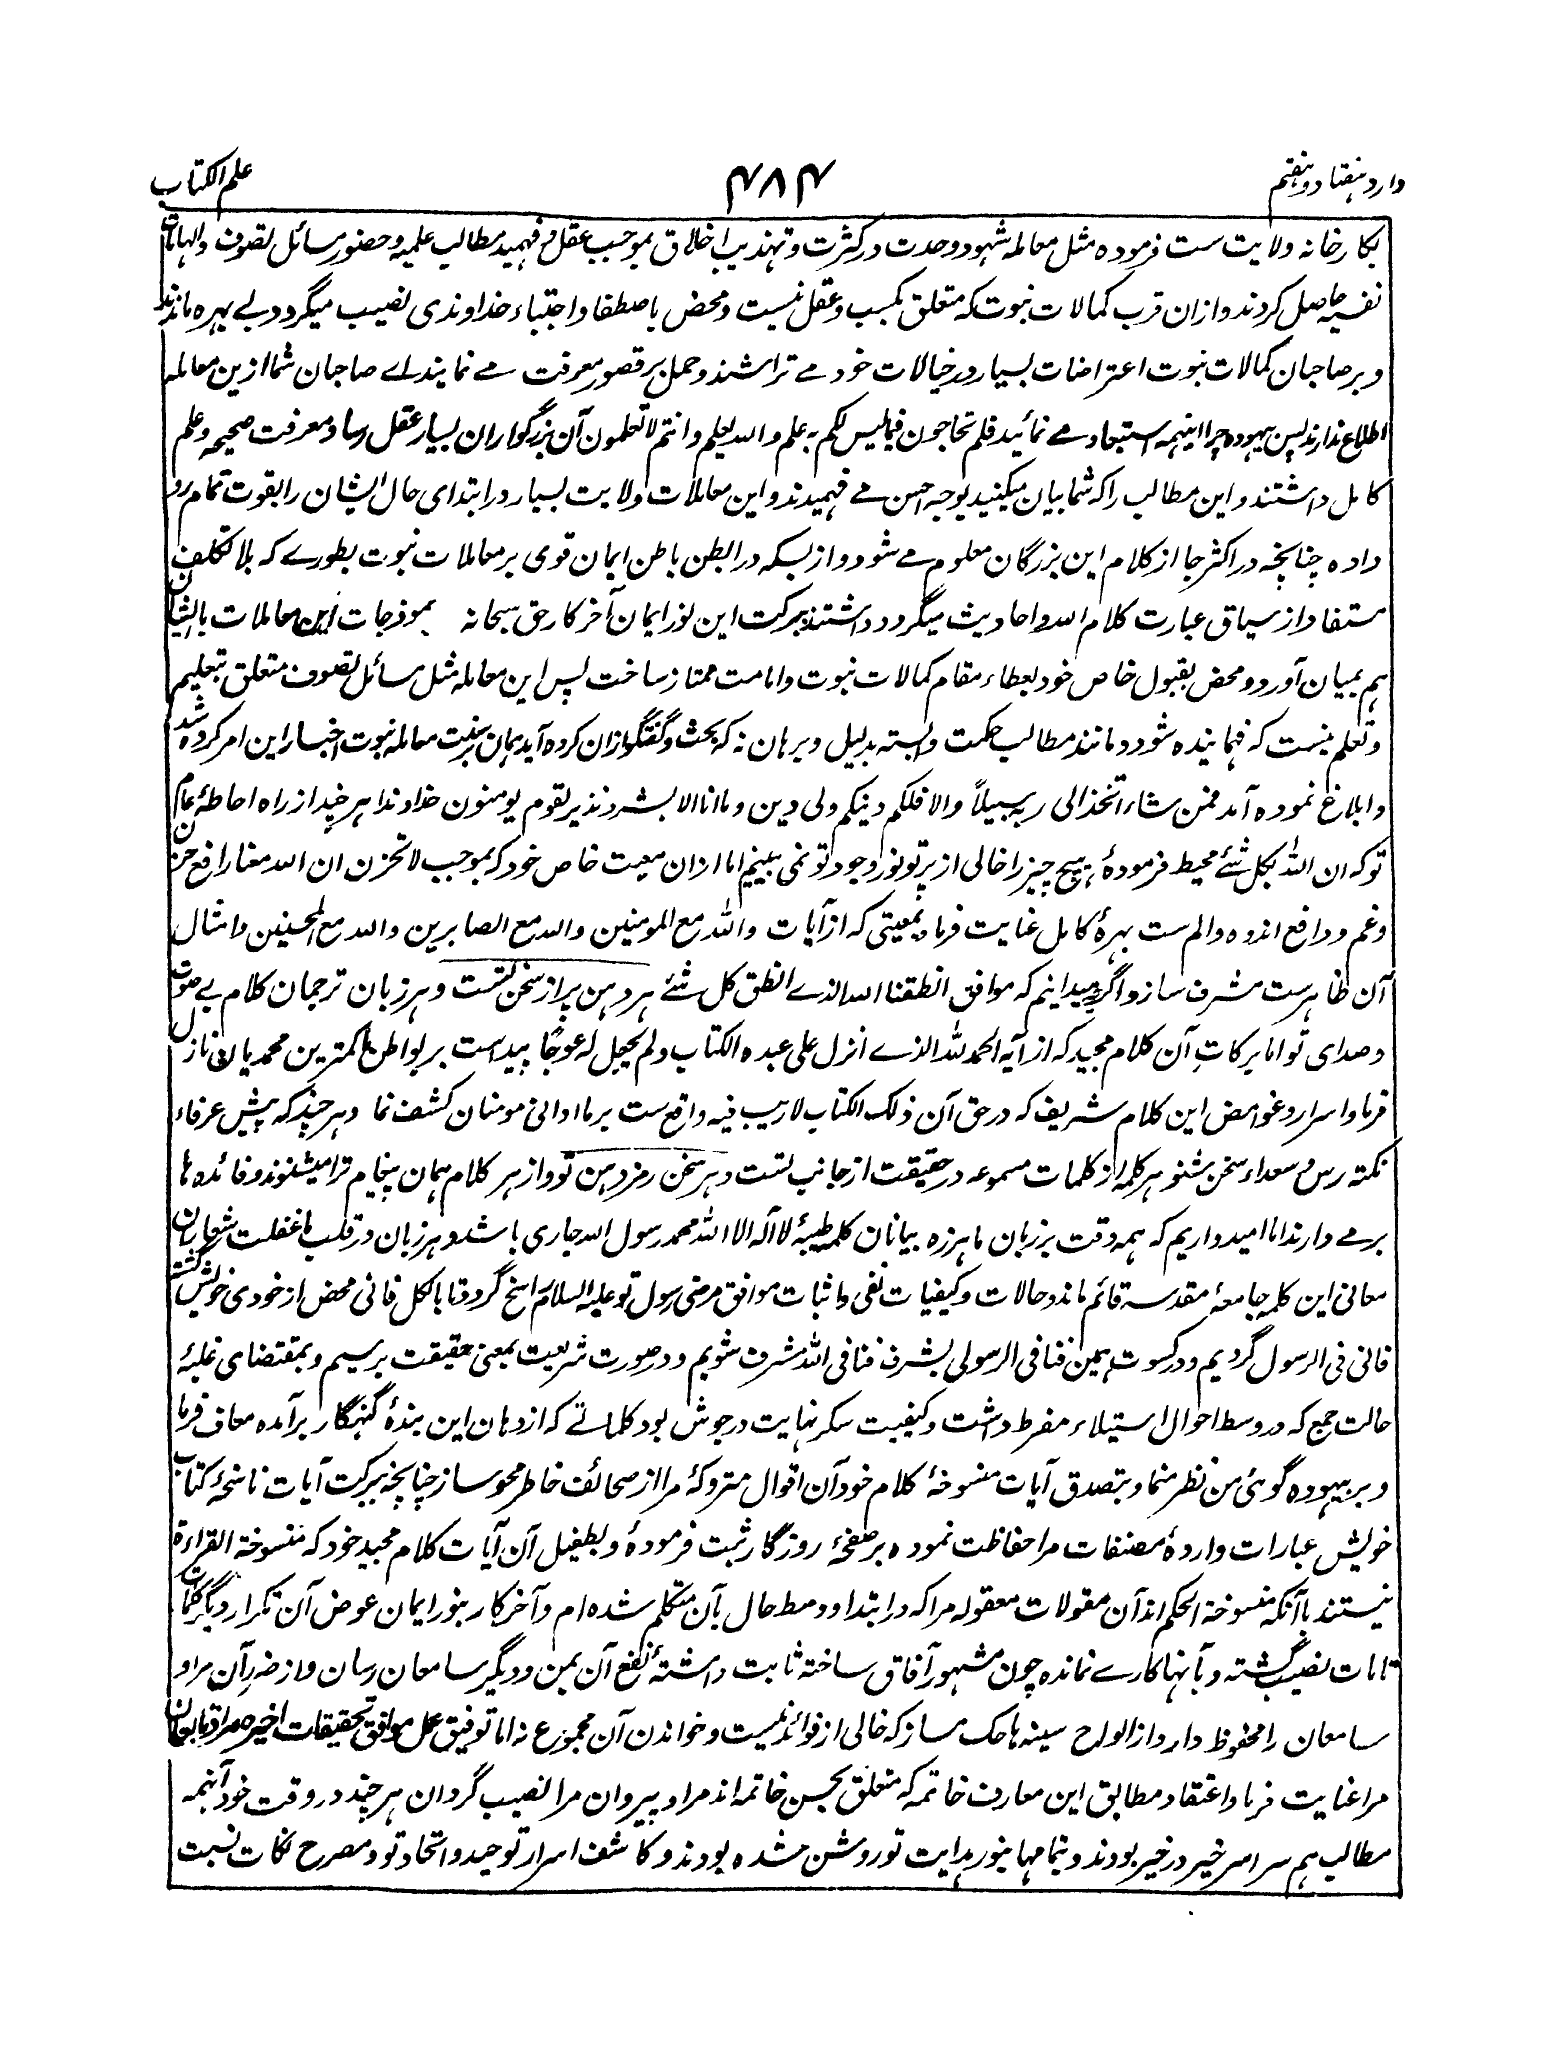 وارد هفتاد و هفتم
۴۸۴
علم الکتاب
بکارخانه ولایت ست فرموده مثل معامله شهود وحدت در کثرت و تهذیب اخلاق بموجب عقل و فهمید مطالب علمیه و حضور مسائل تصوف و الهامات
نفسیه حاصل کردند و ازان قرب کمالات نبوت که متعلق بکسب و عقل نیست و محض باصطفا و اجتباء خداوندی نصیب میگردد بے بهره ماندند
و بر صاحبان کمالات نبوت اعتراضات بسیار در خیالات خود مے تراشند و حمل بر قصور معرفت مے نمایند اے صاحبان شما ازین معامله
اطلاع ندارند پس بیهوده چرا اینهمه استبعاد مے نمائید فلم تحاجون فیما لیس لکم به علم و الله یعلم و انتم لا تعلمون آن بزرگواران بسیار عقل رسا و معرفت صحیحه و علم
کامل داشتند و این مطالب را که شما بیان میکنید بوجه احسن مے فهمیدند و این معاملات ولایت بسیار در ابتدای حال ایشان را بقوت تمام رو
داده چنانچه در اکثر جا از کلام این بزرگان معلوم مے شود و از بسکه در ابطن باطن ایمان قوی بر معاملات نبوت بطورے که بلا تکلف
مستفاد از سیاق عبارت کلام الله و احادیث میگردد داشتند ببرکت این نور ایمان آخر کار حق سبحانه بموذجات این معاملات بایشان
هم بمیان آورد و محض بقبول خاص خود بعطاء مقام کمالات نبوت و امامت ممتاز ساخت پس این معامله مثل مسائل تصوف متعلق بتعلیم
و تعلم نیست که فهمانیده شود و مانند مطالب حکمت وابسته بدلیل و برهان نه که بحث و گفتگو ازان کرده آید همان بسنت معامله نبوت اخبار این امر کرده شد
و ابلاغ نموده آمد فمن شاء اتخذ الی ربه سبیلاً والا فلکم دینکم ولی دین و ما انا الا بشر و نذیر لقوم یومنون خداوندا هر چند از راه احاطهٔ عام
تو که ان الله بکل شئے محیط فرمودهٔ هیچ چیز را خالی از پرتو نور وجود تو نمی بینیم اما ازان معیت خاص خود که بموجب لا تحزن ان الله معنا رافع حزن
و غم و دافع اندوه و الم ست بهرهٔ کامل عنایت فرما و بمعیتی که از آیات و الله مع المومنین والله مع الصابرین والله مع المحسنین و امثال
آن ظاهرست مشرف ساز و اگرچه میدانیم که موافق انطقنا الله الذے انطق کل شئے هر دهن پر از سخن تست و هر زبان ترجمان کلام بے صوت
و صدای تو اما برکات آن کلام مجید که از آیه الحمد لله الذے انزل علی عبده الکتاب ولم یجعل له عوجًا پیداست بر بواطن ما کمترین محمدیان نازل
فرما و اسرار و غوامض این کلام شریف که در حق آن ذلک الکتاب لا ریب فیه واقع ست بر ما ادانی مومنان کشف نما و هر چند که پیش عرفاء
نکته رس و سعداء سخن شنو هر کلمه از کلمات مسموعه در حقیقت از جانب تست و هر سخن رمز دهن تو و از هر کلام همان پیغام ترا میشنوند و فائده ها
برمے دارند اما امیدواریم که همه وقت بر زبان ما هرزه بیانان کلمه طیبهٔ لا اله الا الله محمد رسول الله جاری باشد و هر زبان در قلب ما غفلت شعاران
معانی این کلمه جامعهٔ مقدسه قائم ماند و حالات و کیفیات نفی و اثبات موافق مرضی رسول تو علیه السلام راسخ گردد تا بالکل فانی محض از خودی خویش گشته
فانی فی الرسول گردیم و در کسوت همین فنا فی الرسولی بشرف فنا فی الله مشرف شویم و در صورت شریعت بمعنی حقیقت برسیم و بمقتضای غلبهٔ
حالت جمع که در وسط احوال استیلاء مفرط داشت و کیفیت سکر نهایت در جوش بود کلماتے که از دهان این بندهٔ گنهگار برآمده معاف فرما
و بر بیهوده گوئی من نظر منما و بتصدق آیات منسوخهٔ کلام خود آن اقوال متروکهٔ مرا از صحائف خاطر محو ساز چنانچه ببرکت آیات ناسخهٔ کتاب
خویش عبارات واردهٔ مصنفات مرا حفاظت نموده بر صفحهٔ روزگار ثبت فرمودهٔ و بطفیل آن آیات کلام مجید خود که منسوخة القراءة
نیستند با آنکه منسوخة الحکم اند آن مقولات معقوله مرا که در ابتدا و وسط حال بآن متکلم شده ام و آخر کار بنور ایمان عوض آن تکرار دیگر کلمات
تامات نصیب گشته و بآنها کارے نمانده چون مشهور آفاق ساخته ثابت داشتهٔ نفع آن بمن و دیگر سامعان رسان و از ضرر آن مرا و
سامعان را محفوظ دار و از الواح سینه ها حک مساز که خالی از فوائد نیست و خواندن آن ممجوع نه اما توفیق عمل موافق تحقیقات اخیره مرا و تابعان
مرا عنایت فرما و اعتقاد مطابق این معارف خاتمه که متعلق بحسن خاتمه اند مرا و پیروان مرا نصیب گردان هر چند در وقت خود آنهمه
مطالب هم سراسر خیر در خیر بودند و بتمامها بنور هدایت تو روشن شده بودند و کاشف اسرار توحید و اتحاد تو و مصرح نکات نسبت